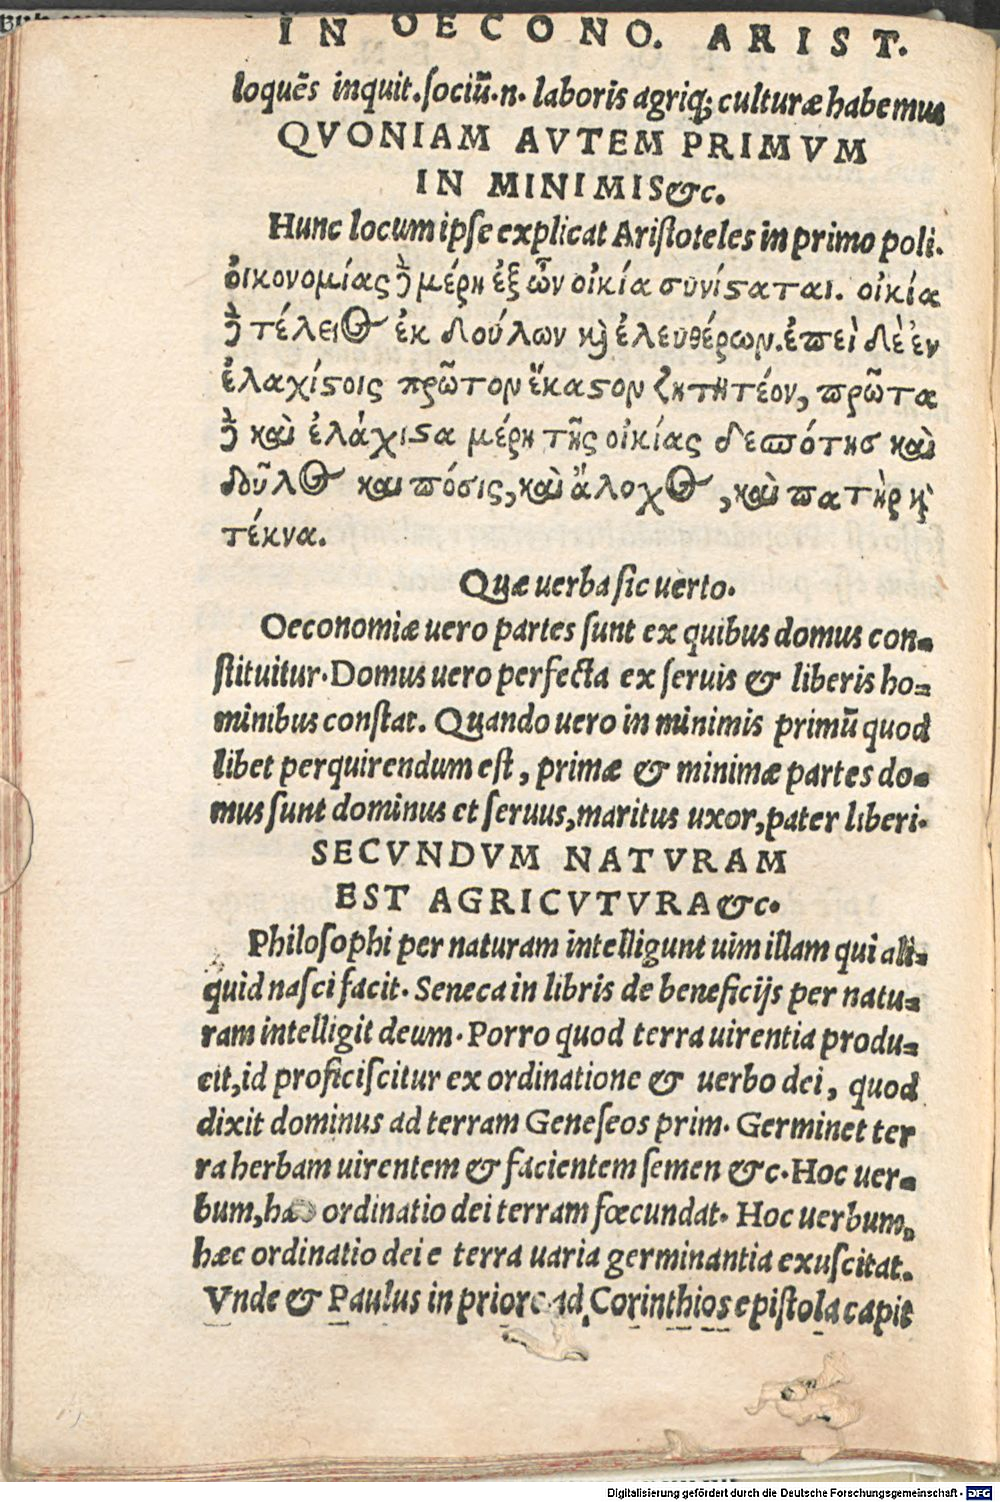 IN OECONO. ARIST.
loquēs inquit.ſociū.n. laboris agriq; culturæ habemus
QVONIAM AVTEM PRIMVM
IN MINIMIS&c.
Hunc locum ipſe explicat Ariſtoteles in primo poli.
οἰκονομίας δὲ μέρη ἐξ ὧν οἰκία συνίςαται. οἰκία
δὲ τέλειος ἐκ δούλων καὶ ἐλευθέρων.ἐπεὶ δὲ ἐν
ἐλαχίςοις πρῶτον ἕκαςον ζητητέον, πρῶτα
δὲ καὶ ἐλάχιςα μέρη τῆς οἰκίας δεσπότησ καὶ
δοῦλος καὶ πόσις, καὶ ἄλοχος , καὶ πατὴρ καὶ
τέκνα.
Quæ uerba ſic uerto.
Oeconomiæ uero partes ſunt ex quibus domus con-
ſtituitur. Domus uero perfecta ex ſeruis & liberis ho-
minibus conſtat. Quando uero in minimis primū quod
libet perquirendum eſt, primæ & minimæ partes do-
mus ſunt dominus et ſeruus, maritus uxor, pater liberi.
SECVNDVM NATVRAM
EST AGRICVTVRA&c.
Philoſophi per naturam intelligunt uim illam qui ali-
quid naſci facit. Seneca in libris de beneficijs per natu-
ram intelligit deum. Porro quod terra uirentia produ-
cit, id proficiſcitur ex ordinatione & uerbo dei, quod
dixit dominus ad terram Geneſeos prim. Germinet ter
ra herbam uirentem & facientem ſemen &c. Hoc uer-
bum, hæc ordinatio dei terram fœcundat. Hoc uerbum,
hæc ordinatio dei e terra uaria germinantia exuſcitat.
Vnde & Paulus in priore ad Corinthios epiſtola capit
Digitalisierung gefördert durch die Deutsche Forschungsgemeinschaft - DFG